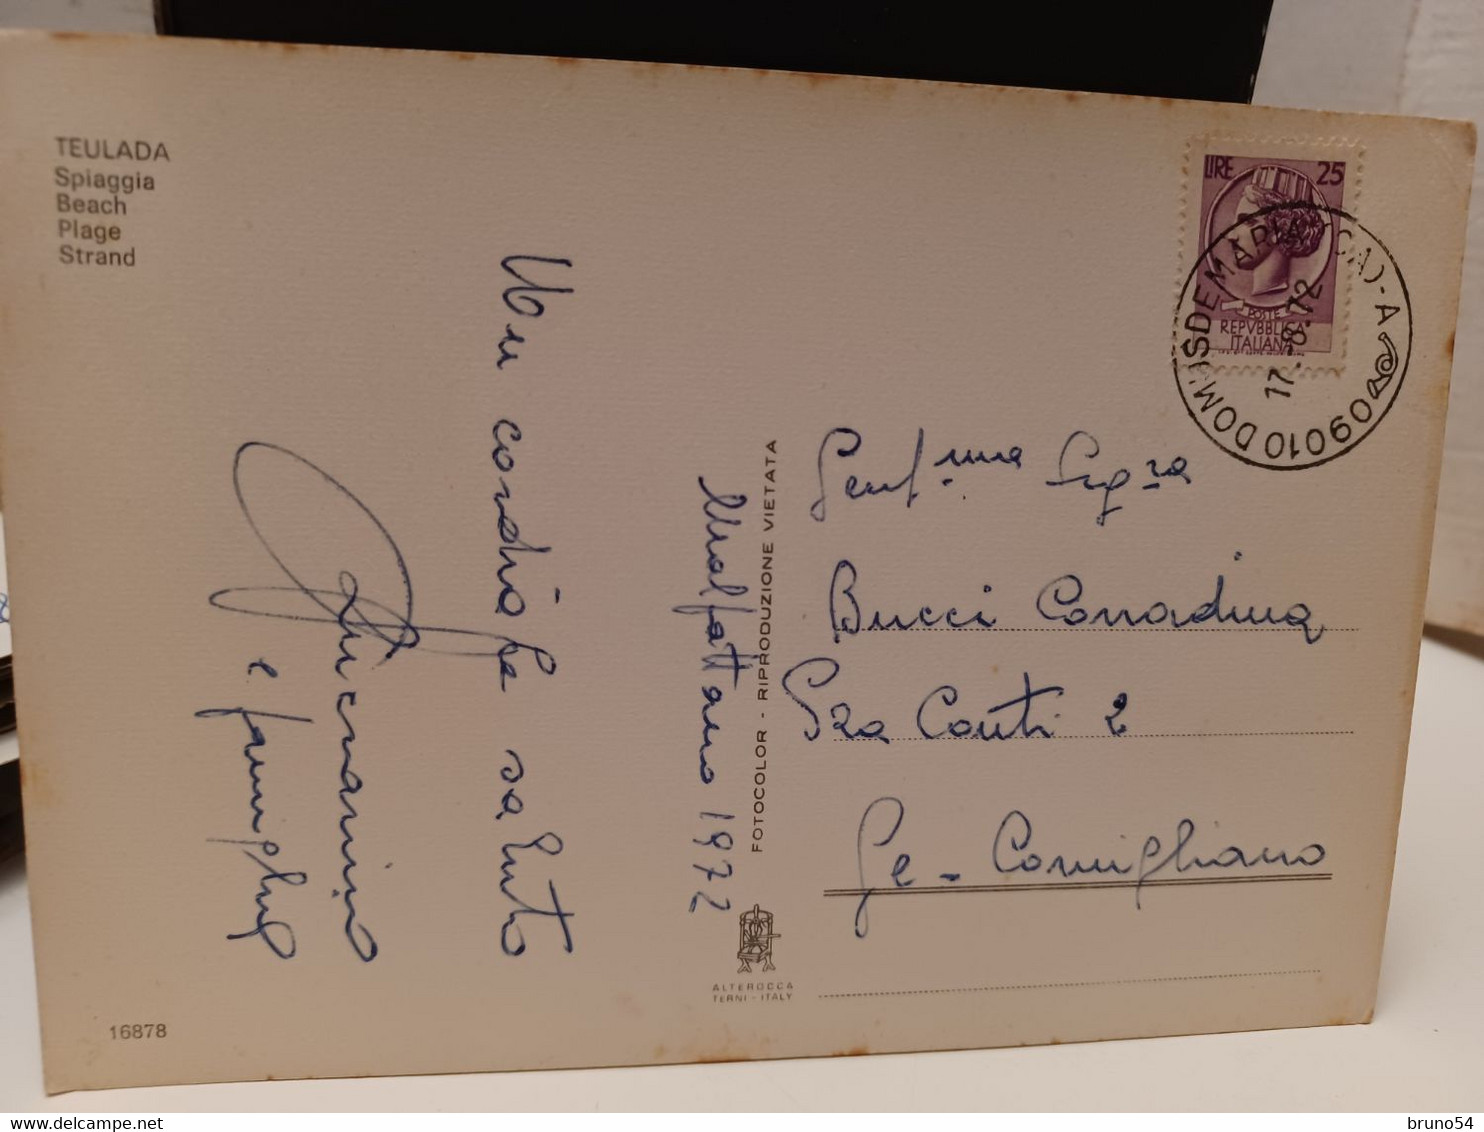 TEULADA
Spiaggia
Beach
Plage
Strand
Un cordiale saluto
e famiglia
Malfattano 1972
FOTOCOLOR - RIPRODUZIONE VIETATA
LIRE 25
POSTE
REPVBBLICA
ITALIANA
09010 DOMUSDE MARIA (CA) - A
17.-8.72
Gent.ma Sig.ra
Bucci Corradina
Conti 2
Ge - Cornigliano
ALTEROCCA
TERNI - ITALY
16878
delcampe.net
bruno54